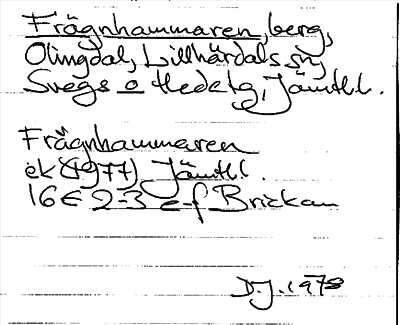 Frägnhammaren, berg,
Olingdal, Lillhärdals sn,
Svegs o Hede tg, Jämtl.l.
Frägnhammaren
ek (1977) Jämtl.l.
16 E 2-3 e-f Brickan
D.J. 1978